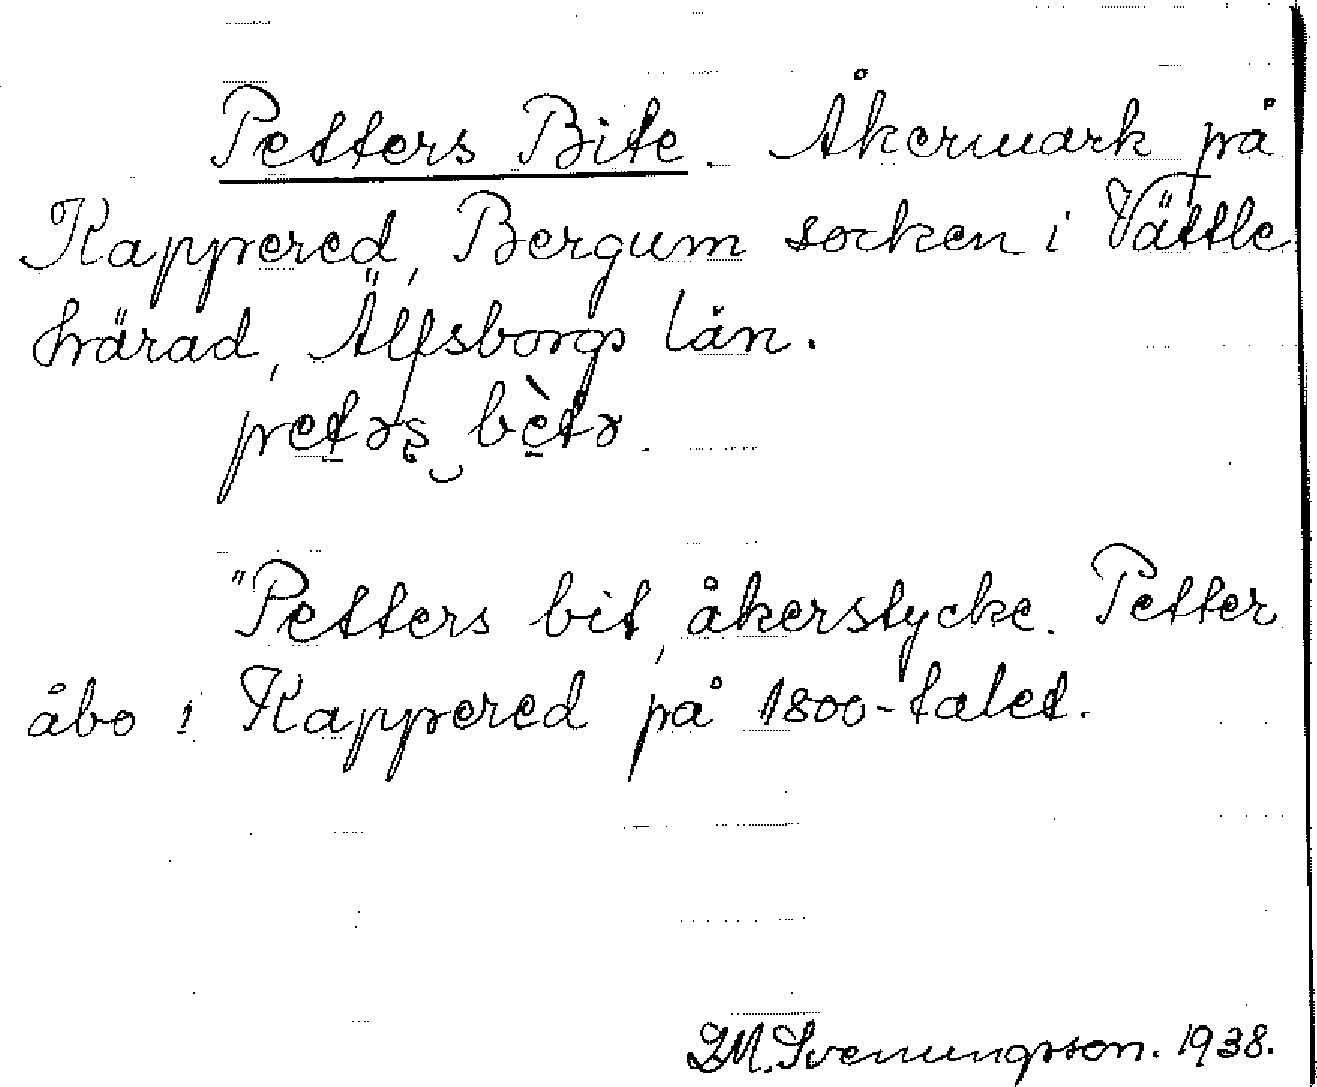 Petters Bite. Åkermark på
Kappered, Bergum socken i Vättle
härad, Älfsborgs län.
petərs‿bètə.
"Petters bit, åkerstycke. Petter
åbo i Kappered på 1800-talet.
Svenungsson. 1938.